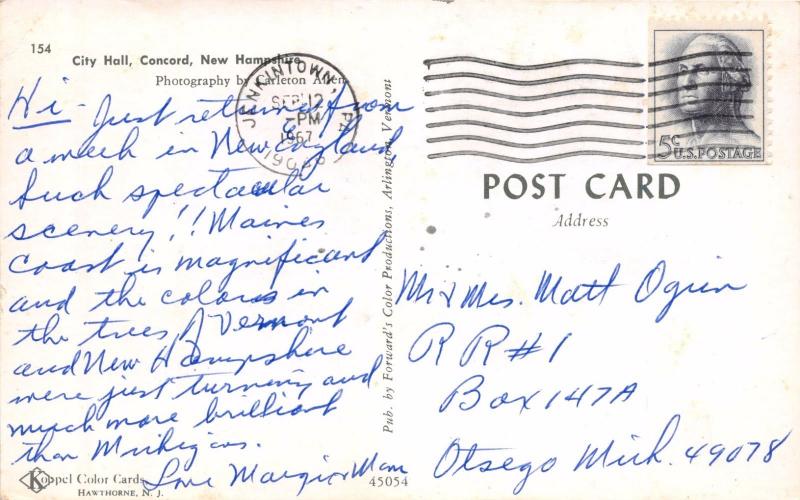 154
City Hall, Concord, New Hampshire
Photography by Carleton Allen
Hi - Just returned from
a week in New England,
Such spectacular
scenery!! Maines
coast is magnificant
and the colors in
the trees of Vermont
and New Hampshire
were just turning and
much more brilliant
than Michigans.
Love Margie & Mom
Koppel Color Cards
HAWTHORNE, N. J.
45054
Pub. by Forward's Color Productions, Arlington, Vermont
JENKINTOWN, PA
SEP 12
PM
1967
19046
5c U.S. POSTAGE
POST CARD
Address
Mr & Mrs. Matt Ogrin
RR#1
Box 147A
Otsego Mich. 49078